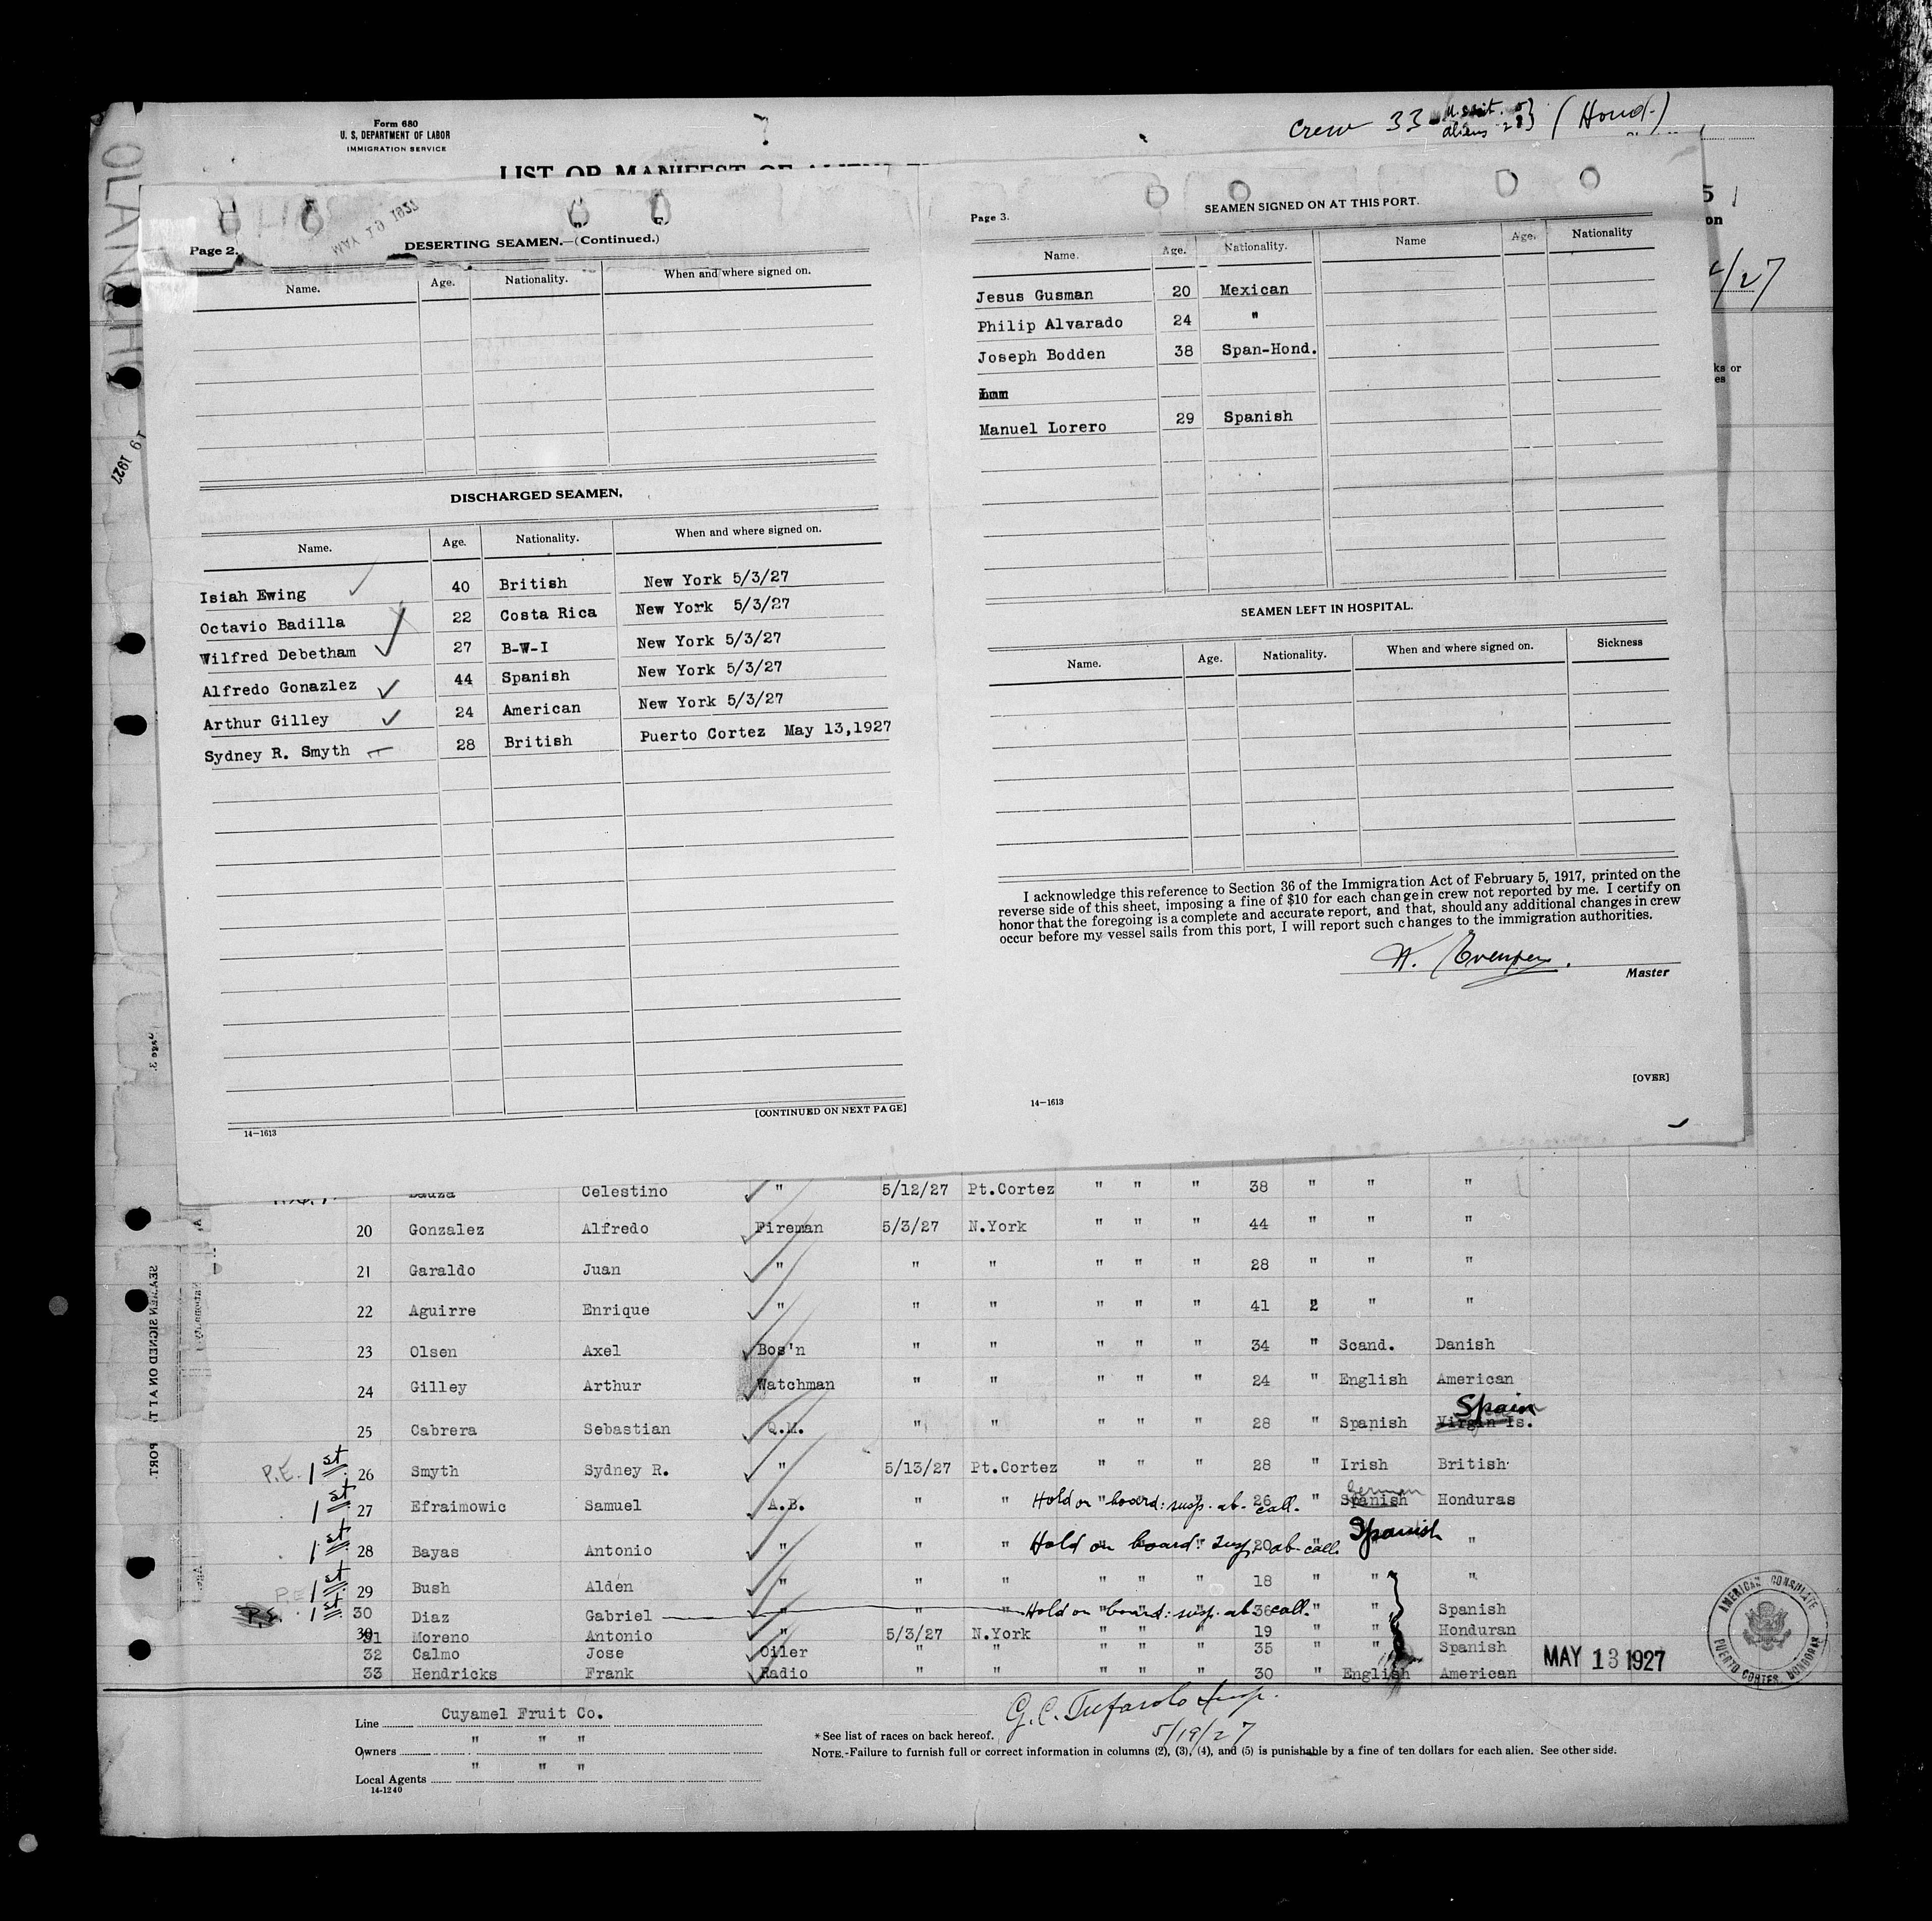 Form 680
U. S. DEPARTMENT OF LABOR
IMMIGRATION SERVICE
Crew 33 aliens 28 (Hond.)
LIST OR MANIFEST OF ALIENS
MAY 19 1927
Page 2.
DESERTING SEAMEN.—(Continued.)
Name. Age. Nationality. When and where signed on.
DISCHARGED SEAMEN,
Name. Age. Nationality. When and where signed on.
Isiah Ewing 40 British New York 5/3/27
Octavio Badilla 22 Costa Rica New York 5/3/27
Wilfred Debetham 27 B-W-I New York 5/3/27
Alfredo Gonazlez 44 Spanish New York 5/3/27
Arthur Gilley 24 American New York 5/3/27
Sydney R. Smyth 28 British Puerto Cortez May 13,1927
[CONTINUED ON NEXT PAGE]
14—1613
Page 3.
SEAMEN SIGNED ON AT THIS PORT.
Name. Age. Nationality. Name Age. Nationality
Jesus Gusman 20 Mexican
Philip Alvarado 24 "
Joseph Bodden 38 Span-Hond.
Manuel Lorero 29 Spanish
SEAMEN LEFT IN HOSPITAL.
Name. Age. Nationality. When and where signed on. Sickness
I acknowledge this reference to Section 36 of the Immigration Act of February 5, 1917, printed on the
reverse side of this sheet, imposing a fine of $10 for each change in crew not reported by me. I certify on
honor that the foregoing is a complete and accurate report, and that, should any additional changes in crew
occur before my vessel sails from this port, I will report such changes to the immigration authorities.
Master
[OVER]
14—1613
Bauza Celestino " 5/12/27 Pt.Cortez " " " 38 " " "
20 Gonzalez Alfredo Fireman 5/3/27 N.York " " " 44 " " "
21 Garaldo Juan " " " " " " 28 " " "
22 Aguirre Enrique " " " " " " 41 " " "
23 Olsen Axel Bos'n " " " " " 34 " Scand. Danish
24 Gilley Arthur Watchman " " " " " 24 " English American
25 Cabrera Sebastian Q.M. " " " " " 28 " Spanish Virgin Is. Spain
P.E. 1st 26 Smyth Sydney R. " 5/13/27 Pt.Cortez " " " 28 " Irish British
1st 27 Efraimowic Samuel A.B. " " Hold on board: susp. ab- call. 26 " Spanish German Honduras
1st 28 Bayas Antonio " " " Hold on board: susp ab-call. 20 " Spanish "
P.E. 1st 29 Bush Alden " " " " " " 18 " " "
P.E. 1st 30 Diaz Gabriel " " " Hold on board: susp. ab- call. 36 " " Spanish
31 Moreno Antonio " 5/3/27 N.York " " " 19 " " Honduran
32 Calmo Jose Oiler " " " " " 35 " " Spanish
33 Hendricks Frank Radio " " " " " 30 " English American
MAY 13 1927
AMERICAN CONSULATE
PUERTO CORTES, HONDURAS
Line Cuyamel Fruit Co.
Owners " " "
Local Agents " " "
14-1240
5/19/27
*See list of races on back hereof.
NOTE.-Failure to furnish full or correct information in columns (2), (3), (4), and (5) is punishable by a fine of ten dollars for each alien. See other side.